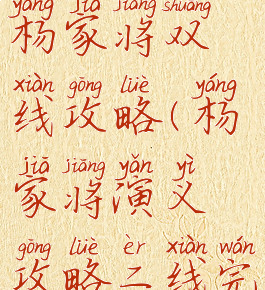 yáng jiā jiāng shuāng
杨家将双
xiàn gōng lüè yáng
线攻略(杨
jiā jiāng yǎn yì
家将演义
gōng lüè èr xiàn wán
攻略二线完